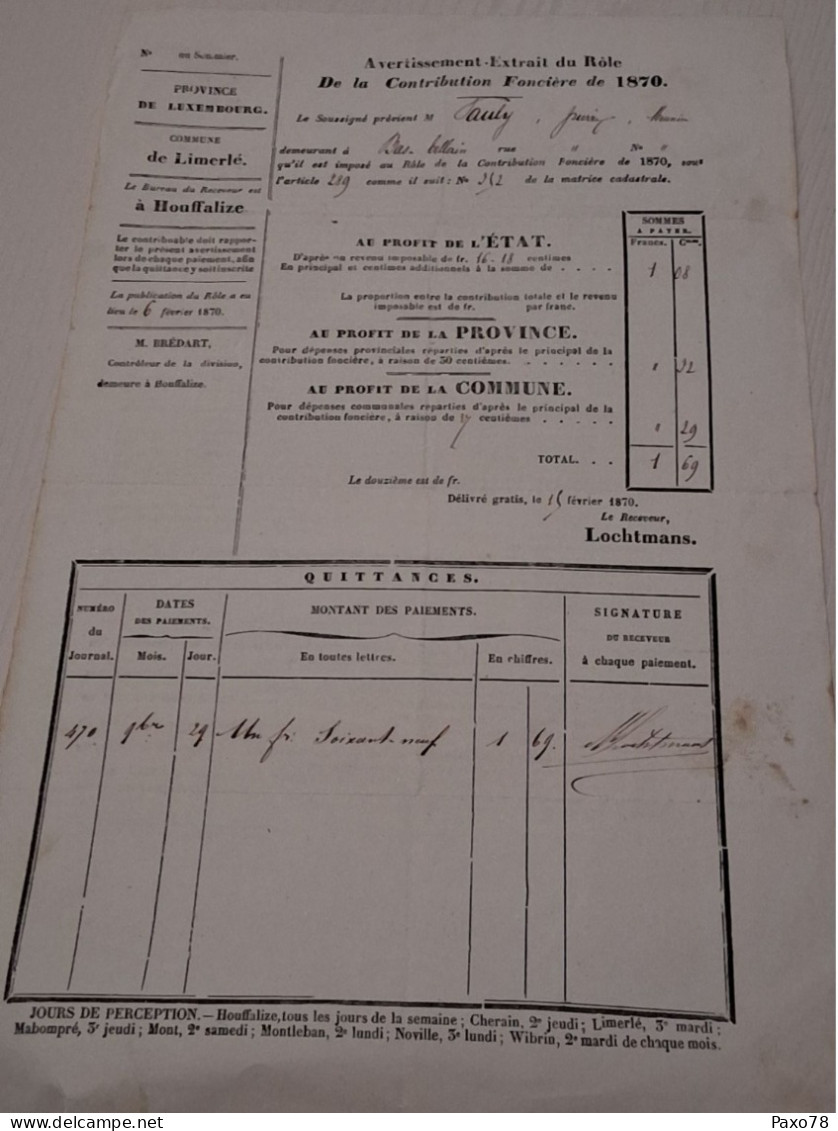 N° au Sommier.
PROVINCE
DE LUXEMBOURG.
COMMUNE
de Limerlé.
Le Bureau du Receveur est
à Houffalize
Le contribuable doit rappor-
ter le présent avertissement
lors de chaque paiement, afin
que la quittance y soit inscrite
La publication du Rôle a eu
lieu le 6 février 1870.
M. BRÉDART,
Contrôleur de la division,
demeure à Houffalize.
Avertissement-Extrait du Rôle
De la Contribution Foncière de 1870.
Le Soussigné prévient M Pauly,
demeurant à Bas-bellain rue " N° "
qu'il est imposé au Rôle de la Contribution Foncière de 1870, sous
l'article 289 comme il suit: N° 252 de la matrice cadastrale.
SOMMES
A PAYER.
Francs. Cmes.
AU PROFIT DE L'ÉTAT.
D'après un revenu imposable de fr. 16-18 centimes
En principal et centimes additionnels à la somme de . . . . . 1 08
La proportion entre la contribution totale et le revenu
imposable est de fr. par franc.
AU PROFIT DE LA PROVINCE.
Pour dépenses provinciales réparties d'après le principal de la
contribution foncière, à raison de 30 centièmes. . . . . . " 32
AU PROFIT DE LA COMMUNE.
Pour dépenses communales réparties d'après le principal de la
contribution foncière, à raison de centièmes . . . . . " 29
TOTAL. . . 1 69
Le douzième est de fr.
Délivré gratis, le 15 février 1870.
Le Receveur,
Lochtmans.
QUITTANCES.
NUMÉRO
du
Journal.
DATES
DES PAIEMENTS.
Mois. Jour.
MONTANT DES PAIEMENTS.
En toutes lettres. En chiffres.
SIGNATURE
DU RECEVEUR
à chaque paiement.
470 9bre 29 Un fr. Soixant-neuf 1 69 Lochtmans
JOURS DE PERCEPTION. — Houffalize, tous les jours de la semaine; Cherain, 2e jeudi; Limerlé, 3e mardi;
Mabompré, 3e jeudi; Mont, 2e samedi; Montleban, 2e lundi; Noville, 3e lundi; Wibrin, 2e mardi de chaque mois.
Paxo78